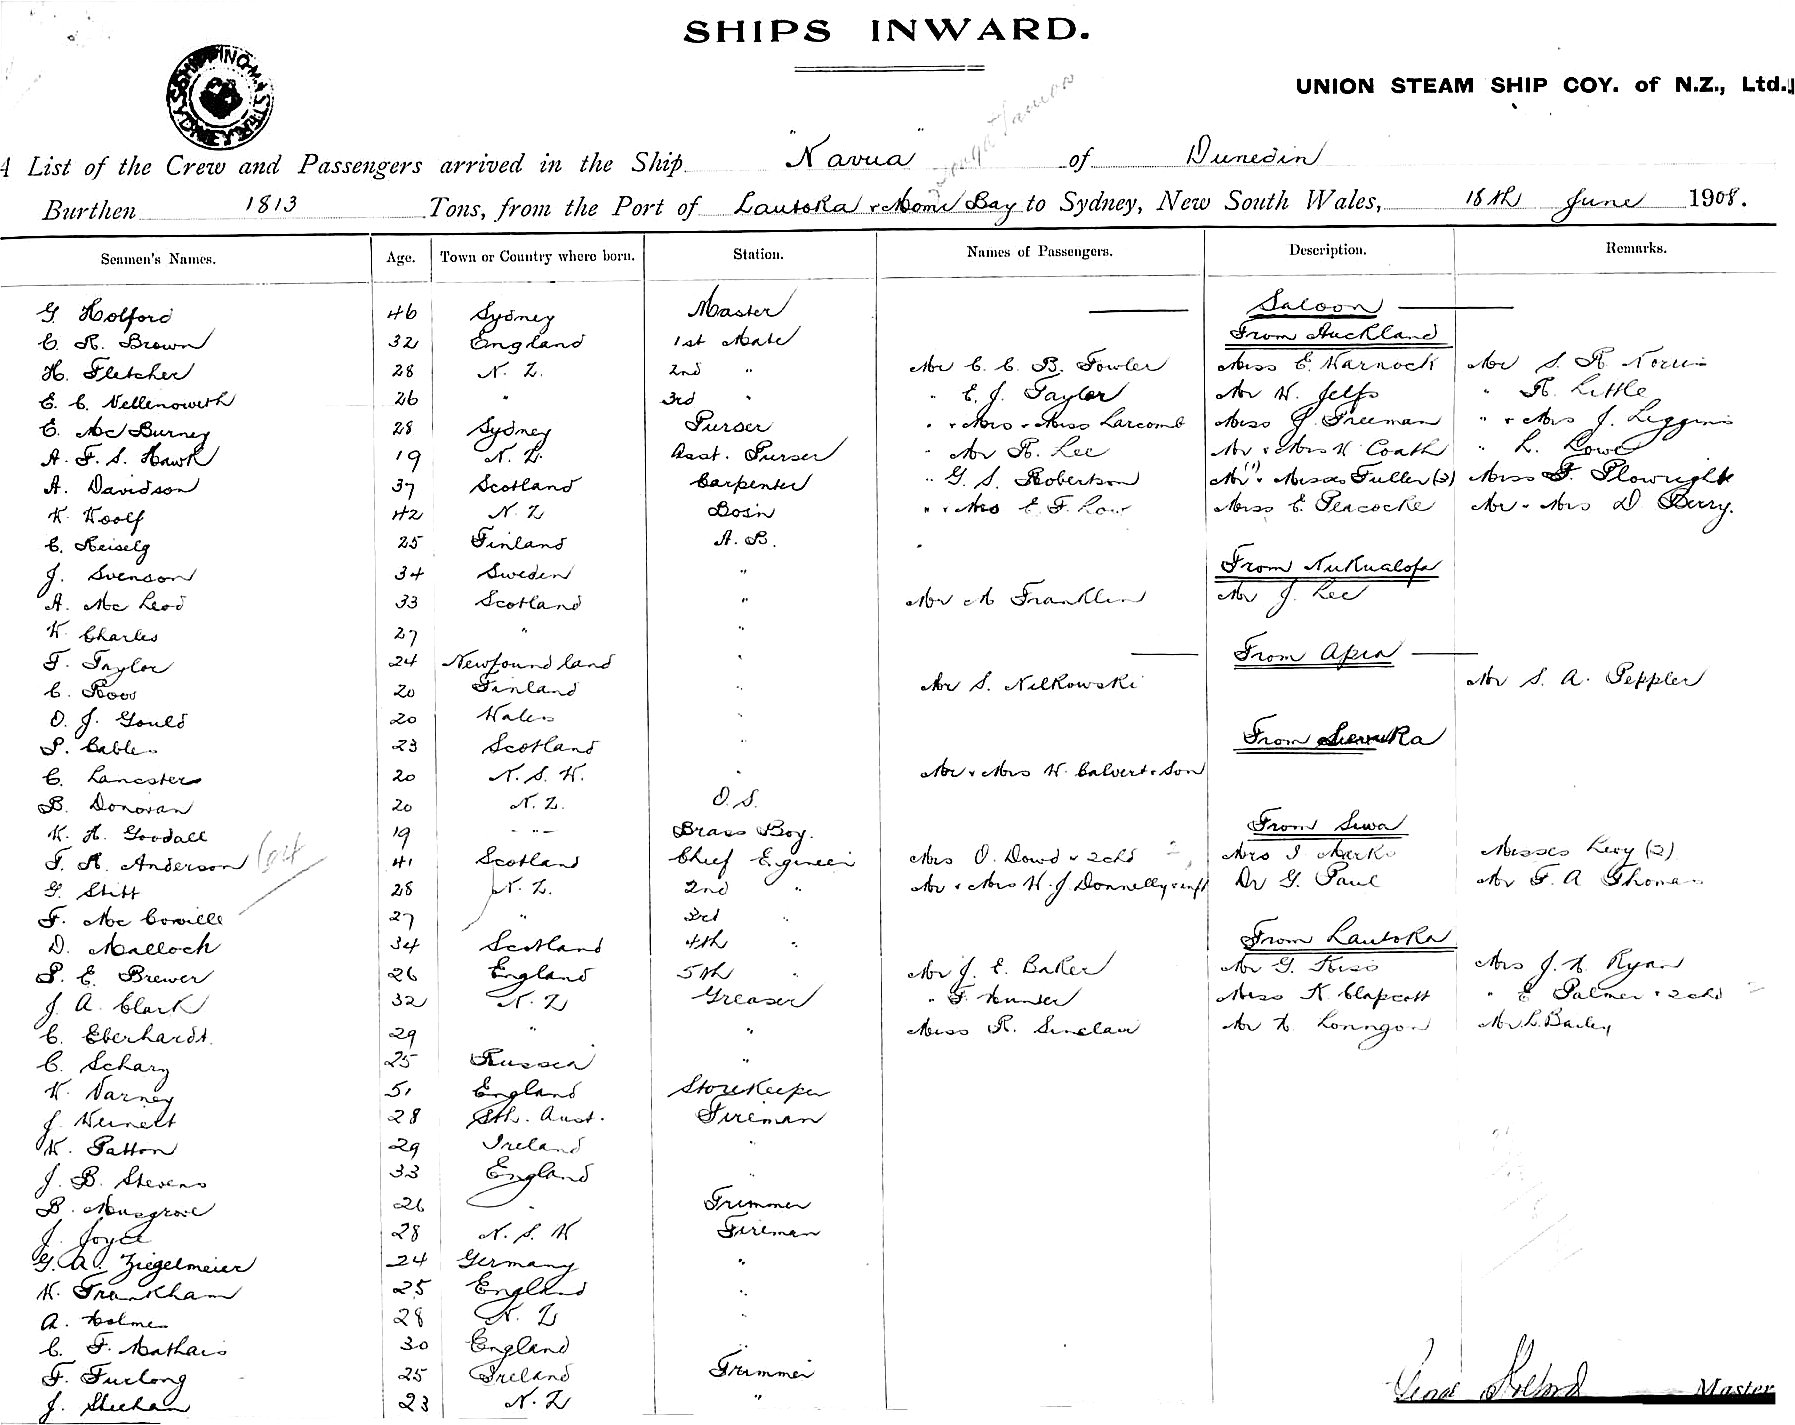 SHIPS INWARD.
SHIPPING MASTER SYDNEY
UNION STEAM SHIP COY. of N.Z., Ltd.
A List of the Crew and Passengers arrived in the Ship "Navua" of Dunedin
Burthen 1813 Tons, from the Port of Lautoka & Momi Bay to Sydney, New South Wales, 18th June 1908.
Seamen's Names. Age. Town or Country where born. Station. Names of Passengers. Description. Remarks.
G. Holford 46 Sydney Master Saloon
C. R. Brown 32 England 1st Mate From Auckland
H. Fletcher 28 N. Z. 2nd " Mr C. C. B. Fowler Miss E. Warnock Mr S. R. Norris
E. C. Vellenoweth 26 " 3rd " " E. J. Taylor Mr W. Jelfs " R. Little
C. McBurney 28 Sydney Purser " & Mrs & Miss Larcomb Miss J. Freeman " & Mrs J. Liggins
A. F. S. Hawk 19 N. Z. Asst. Purser " Mr R. Lee Mr & Mrs W Coath " L. Lowe
A. Davidson 37 Scotland Carpenter " G. S. Robertson Mr (1) & Misses Fuller (3) Miss F. Plowright
W. Woolf 42 N. Z Bosin " & Mrs E. F. Low Miss E. Peacocke Mr & Mrs D. Berry.
C. Reiselg 25 Finland A. B.
J. Svenson 34 Sweden " From Nukualofa
A. McLeod 33 Scotland " Mr M Franklin Mr J. Lee
W. Charles 27 " "
F. Taylor 24 Newfoundland " From Apia
C. Roos 20 Finland " Mr S. Nilkowski Mr S. A. Peppler
O. J. Gould 20 Wales "
P. Cable 23 Scotland " From Levuka
C. Lancaster 20 N. S. W. " Mr & Mrs W. Calvert & Son
B. Donovan 20 N. Z. O. S.
W. H. Goodall 19 " Brass Boy. From Suva
F. H. Anderson 41 Scotland Chief Engineer Mrs O. Dowd & 2 chd Mrs I Marks Misses Levy (2)
G. Stitt 28 N. Z. 2nd " Mr & Mrs W. J. Donnelly & inft Dr G. Paul Mr F. A Thomas
F. McConville 27 " 3rd "
D. Malloch 34 Scotland 4th " From Lautoka
P. E. Brewer 26 England 5th " Mr J. E. Baker Mr G. Kiss Mrs J. H. Ryan
J. A. Clark 32 N. Z Greaser " F. Hunter Miss K Clapcott " E Palmer & 2 chd
C. Eberhardt. 29 " " Miss R. Sinclair Mr H. Mr L. Bailey
C. Scharg 25 Russia "
W. Varney 51 England Storekeeper
J. 28 Sth. Aust. Fireman
W. Patton 29 Ireland "
J. B. Stevens 33 England "
B. Musgrove 26 " Trimmer
J. Joyce 28 N. S. W Fireman
G. A. Ziegelmeier 24 Germany "
W. Frankham 25 England "
A. Holmes 28 N. Z "
C. F. Mathais 30 England "
F. Furlong 25 Ireland Trimmer
J. Sheehan 23 N. Z "
Holford Master